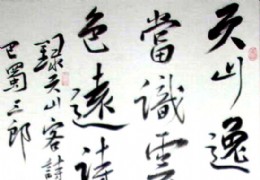 天山逸
當識雲
色遠詩
錄天山客詩
巴蜀三郎